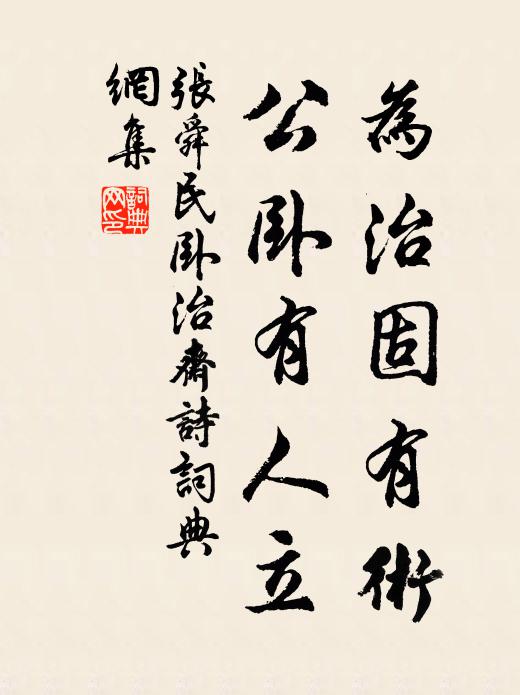 為治固有術
公卧有人立
張舜民卧治齋詩詞典
網集
詞典
网印